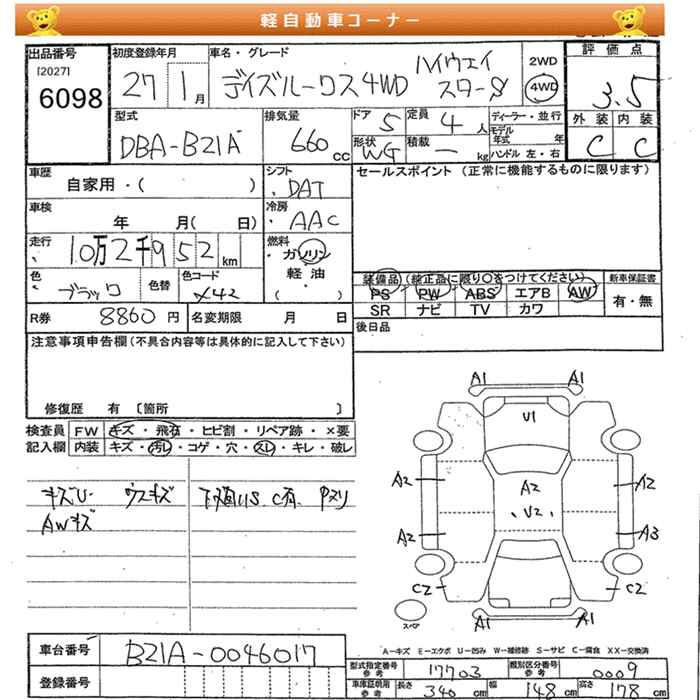 軽自動車コーナー
出品番号 初度登録年月 車名・グレード 2WD 評価点
[2027] 27 1月 デイズルークス4WD ハイウェイスター 4WD 3.5
6098
型式 排気量 ドア 5 定員 4人 ディーラー・並行 外装 内装
DBA-B21A 660cc モデル年式 年 C C
形状 WG 積載 ― kg ハンドル 左・右
車歴 シフト セールスポイント (正常に機能するものに限ります)
自家用・( ) ・DAT
車検 冷房
年 月( 日) ・AAC
走行 10万2千952km 燃料
・ガソリン
色 色替 色コード 軽油 装備品 (純正品に限り○をつけてください) 新車保証書
ブラック X42 ・( ) PS PW ABS エアB AW 有・無
SR ナビ TV カワ
R券 8860円 名変期限 月 日 後日品
注意事項申告欄(不具合内容等は具体的に記入して下さい)
修復歴 有 〔箇所 〕
検査員 FW キズ・飛石・ヒビ割・リペア跡・×要
記入欄 内装 キズ・汚レ・コゲ・穴・スレ・キレ・破レ
キズU・ ウスキズ 下廻りS.C有.Pヌリ
AWキズ
A1 A1
U1
A2 A2 A2
U2
A2 A3
C2 C2
A1 A1
スペア
A-キズ E-エクボ U-凹み W-補修跡 S-サビ C-腐食 XX-交換済
車台番号 B21A-0046017
登録番号
型式指定番号 参考 17703 類別区分番号 参考 0009
車庫証明用 参考 長さ 340cm 幅 148cm 高さ 178cm